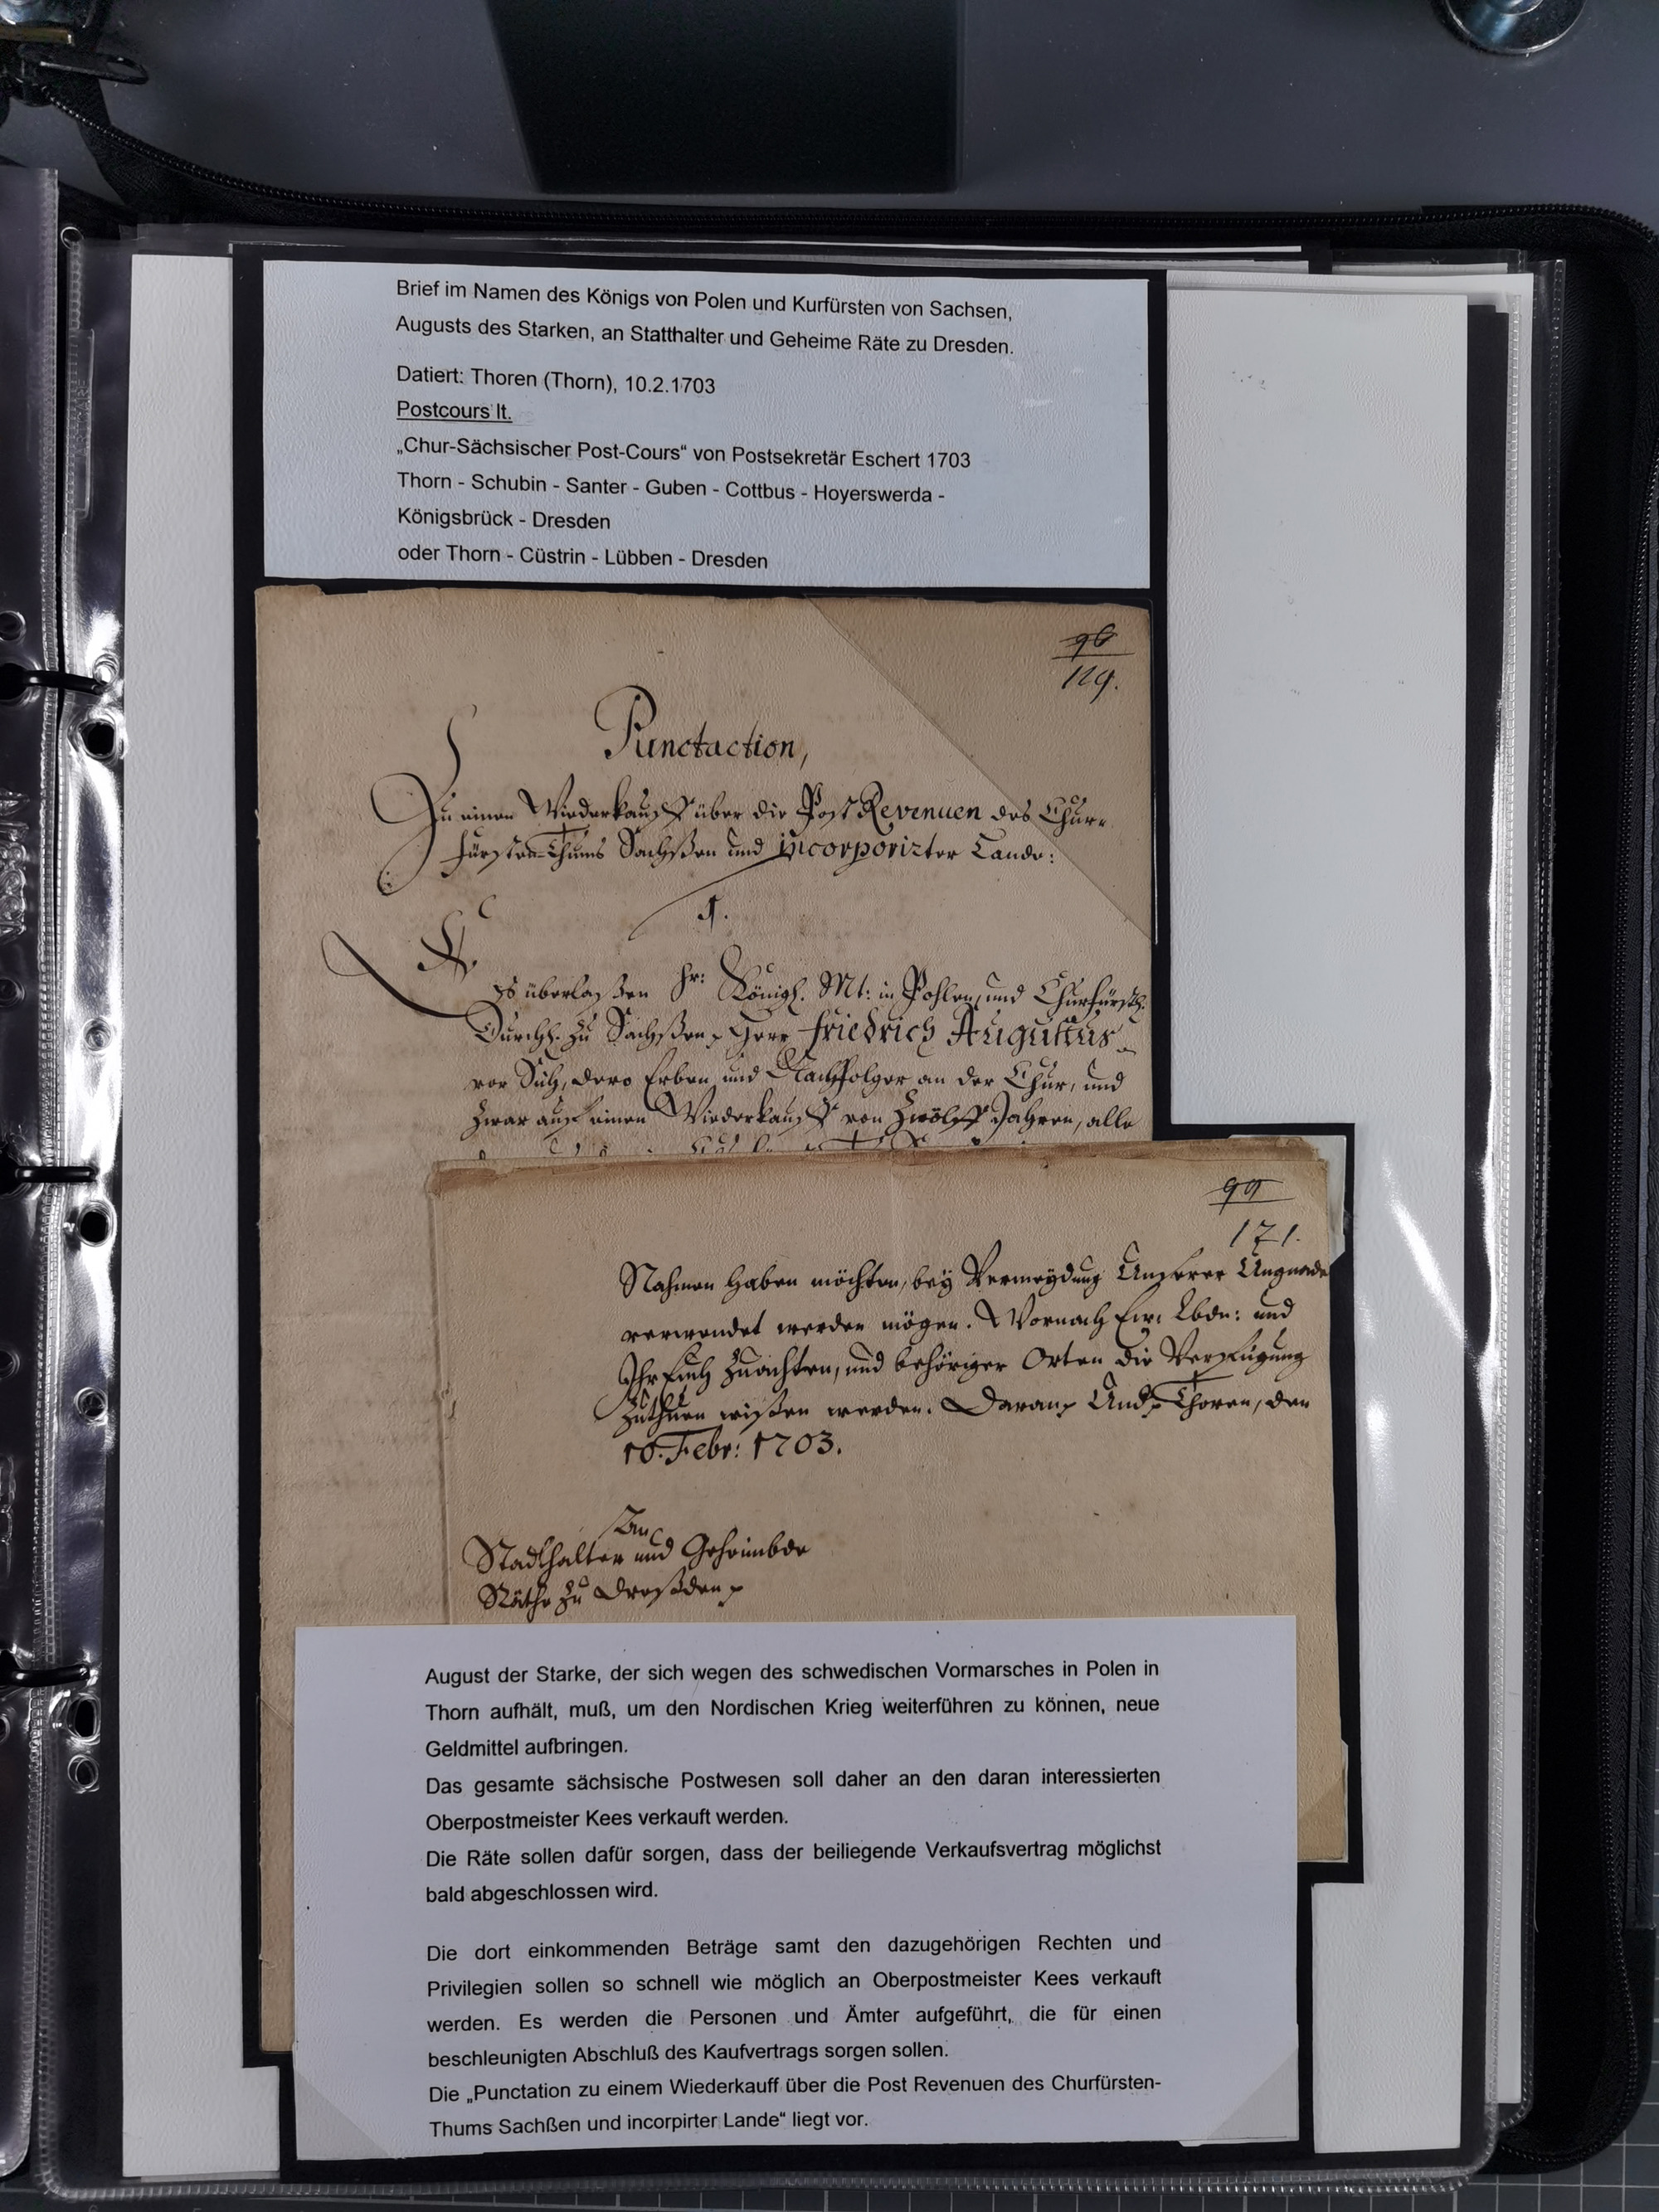 Brief im Namen des Königs von Polen und Kurfürsten von Sachsen,
Augusts des Starken, an Statthalter und Geheime Räte zu Dresden.
Datiert: Thoren (Thorn), 10.2.1703
Postcours lt.
„Chur-Sächsischer Post-Cours“ von Postsekretär Eschert 1703
Thorn - Schubin - Santer - Guben - Cottbus - Hoyerswerda -
Königsbrück - Dresden
oder Thorn - Cüstrin - Lübben - Dresden
96
129.
Punctaction,
Zu einen Wiederkauff über die Post Revenuen des Chur-
Fürsten-Thums Sachßen und incorporirter Lande:
1.
Es überlaßen Jhr: Königl. Mt: in Pohlen, und Churfürstl.
Durchl. zu Sachßen, Herr Friedrich Augustus
vor Sich, dero Erben und Nachfolger an der Chur, und
zwar auf einen Wiederkauff von Zwölff Jahren, alle
99
121.
Nahmen haben möchten, bey Vermeydung Unserer Ungnade
verwendet werden mögen. Wornach Ew: Lbdn: und
Ihr Euch zu achten, und behöriger Orten die Verfügung
zuthuen wißen werden. Daran Und Thoren, den
10. Febr: 1703.
An
Stadthalter und Geheimbde
Räthe zu Dreßden
August der Starke, der sich wegen des schwedischen Vormarsches in Polen in
Thorn aufhält, muß, um den Nordischen Krieg weiterführen zu können, neue
Geldmittel aufbringen.
Das gesamte sächsische Postwesen soll daher an den daran interessierten
Oberpostmeister Kees verkauft werden.
Die Räte sollen dafür sorgen, dass der beiliegende Verkaufsvertrag möglichst
bald abgeschlossen wird.
Die dort einkommenden Beträge samt den dazugehörigen Rechten und
Privilegien sollen so schnell wie möglich an Oberpostmeister Kees verkauft
werden. Es werden die Personen und Ämter aufgeführt, die für einen
beschleunigten Abschluß des Kaufvertrags sorgen sollen.
Die „Punctation zu einem Wiederkauff über die Post Revenuen des Churfürsten-
Thums Sachßen und incorpirter Lande“ liegt vor.